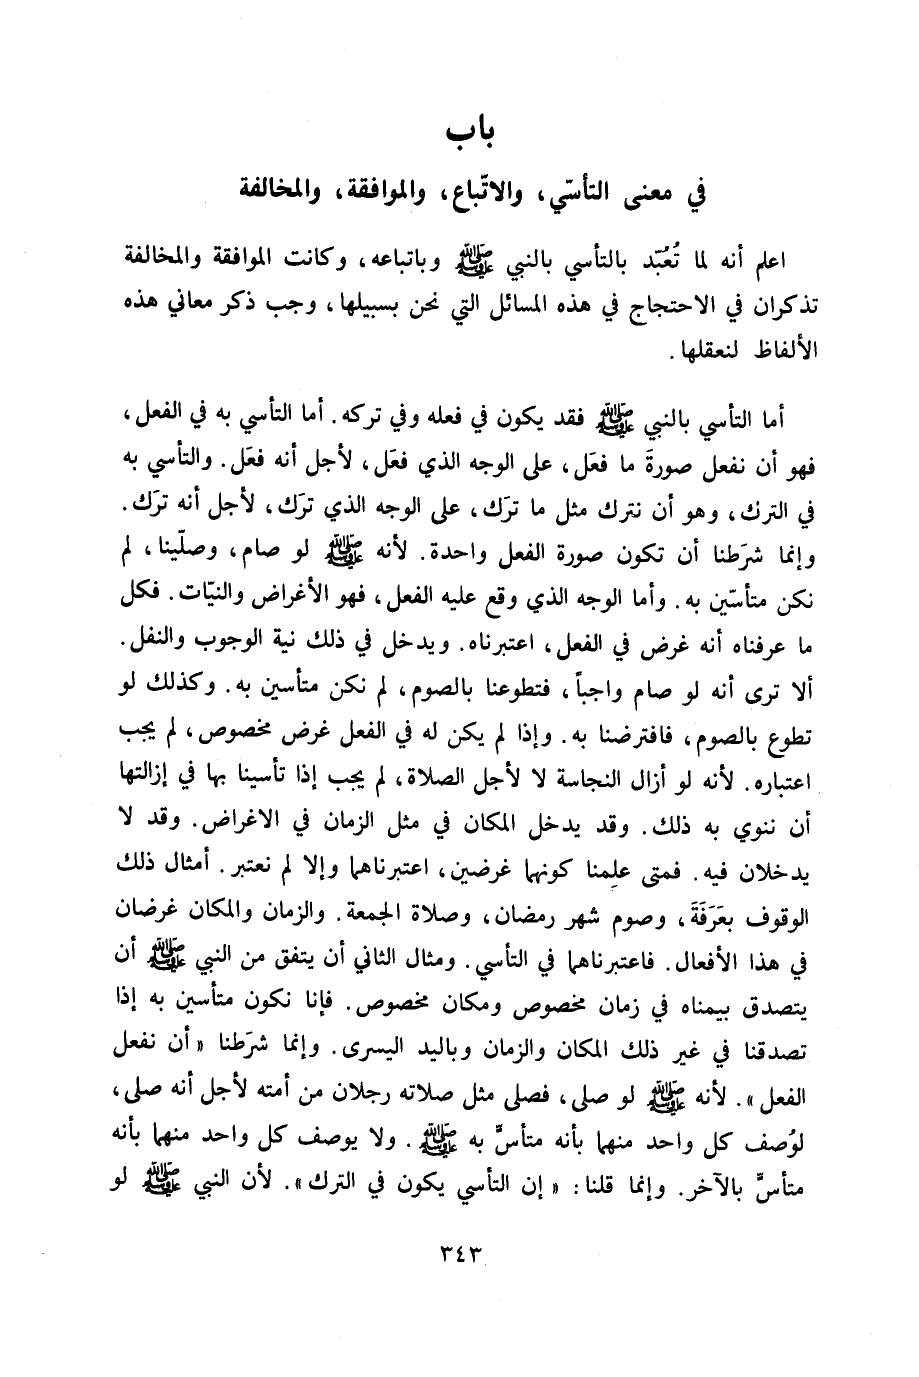 باب
في معنى التأسّي، والاتّباع، والموافقة، والمخالفة
اعلم أنه لما تُعُبّد بالتأسي بالنبي ﷺ وباتباعه، وكانت الموافقة والمخالفة
تذكران في الاحتجاج في هذه المسائل التي نحن بسبيلها، وجب ذكر معاني هذه
الألفاظ لنعقلها.
أما التأسي بالنبي ﷺ فقد يكون في فعله وفي تركه. أما التأسي به في الفعل،
فهو أن نفعل صورةَ ما فعَل، على الوجه الذي فعَل، لأجل أنه فعَل. والتأسي به
في الترك، وهو أن نترك مثل ما ترَك، على الوجه الذي ترَك، لأجل أنه ترَك.
وإنما شرَطنا أن تكون صورة الفعل واحدة. لأنه ﷺ لو صام، وصلّينا، لم
نكن متأسّين به. وأما الوجه الذي وقع عليه الفعل، فهو الأغراض والنيّات. فكل
ما عرفناه أنه غرض في الفعل، اعتبرناه. ويدخل في ذلك نية الوجوب والنفل.
ألا ترى أنه لو صام واجباً، فتطوعنا بالصوم، لم نكن متأسين به. وكذلك لو
تطوع بالصوم، فافترضنا به. وإذا لم يكن له في الفعل غرض مخصوص، لم يجب
اعتباره. لأنه لو أزال النجاسة لا لأجل الصلاة، لم يجب إذا تأسينا بها في إزالتها
أن ننوي به ذلك. وقد يدخل المكان في مثل الزمان في الاغراض. وقد لا
يدخلان فيه. فمتى علِمنا كونهما غرضين، اعتبرناهما وإلا لم نعتبر. أمثال ذلك
الوقوف بعَرَفَةَ، وصوم شهر رمضان، وصلاة الجمعة. والزمان والمكان غرضان
في هذا الأفعال. فاعتبرناهما في التأسي. ومثال الثاني أن يتفق من النبي ﷺ أن
يتصدق بيمناه في زمان مخصوص ومكان مخصوص. فإنا نكون متأسين به إذا
تصدقنا في غير ذلك المكان والزمان وباليد اليسرى. وإنما شرَطنا « أن نفعل
الفعل ». لأنه ﷺ لو صلى، فصلى مثل صلاته رجلان من أمته لأجل أنه صلى،
لوُصف كل واحد منهما بأنه متأسٍّ به ﷺ. ولا يوصف كل واحد منهما بأنه
متأسٍّ بالآخر. وإنما قلنا: « إن التأسي يكون في الترك ». لأن النبي ﷺ لو
٣٤٣